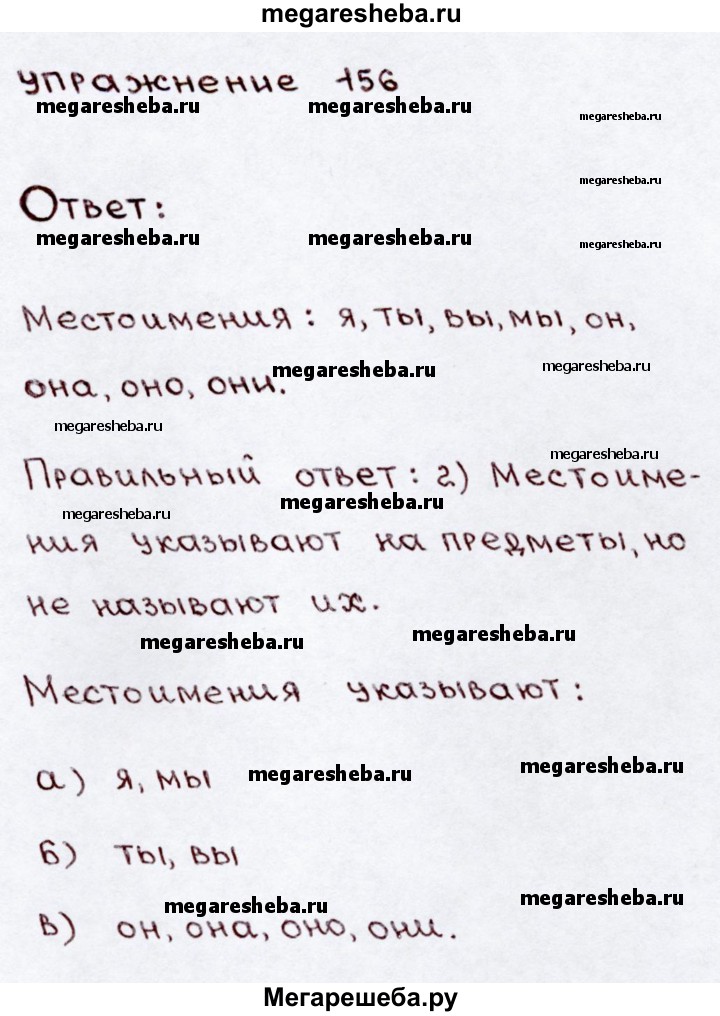 megaresheba.ru
упражнение 156
megaresheba.ru megaresheba.ru megaresheba.ru
megaresheba.ru
Ответ:
megaresheba.ru megaresheba.ru megaresheba.ru
Местоимения: я, ты, вы, мы, он,
megaresheba.ru megaresheba.ru
она, оно, они.
megaresheba.ru
megaresheba.ru
Правильный ответ: г) Местоиме-
megaresheba.ru megaresheba.ru
ния указывают на предметы, но
не называют их.
megaresheba.ru megaresheba.ru
Местоимения указывают:
megaresheba.ru megaresheba.ru
а) я, мы
б) ты, вы
megaresheba.ru megaresheba.ru
в) он, она, оно, они.
Мегарешеба.ру